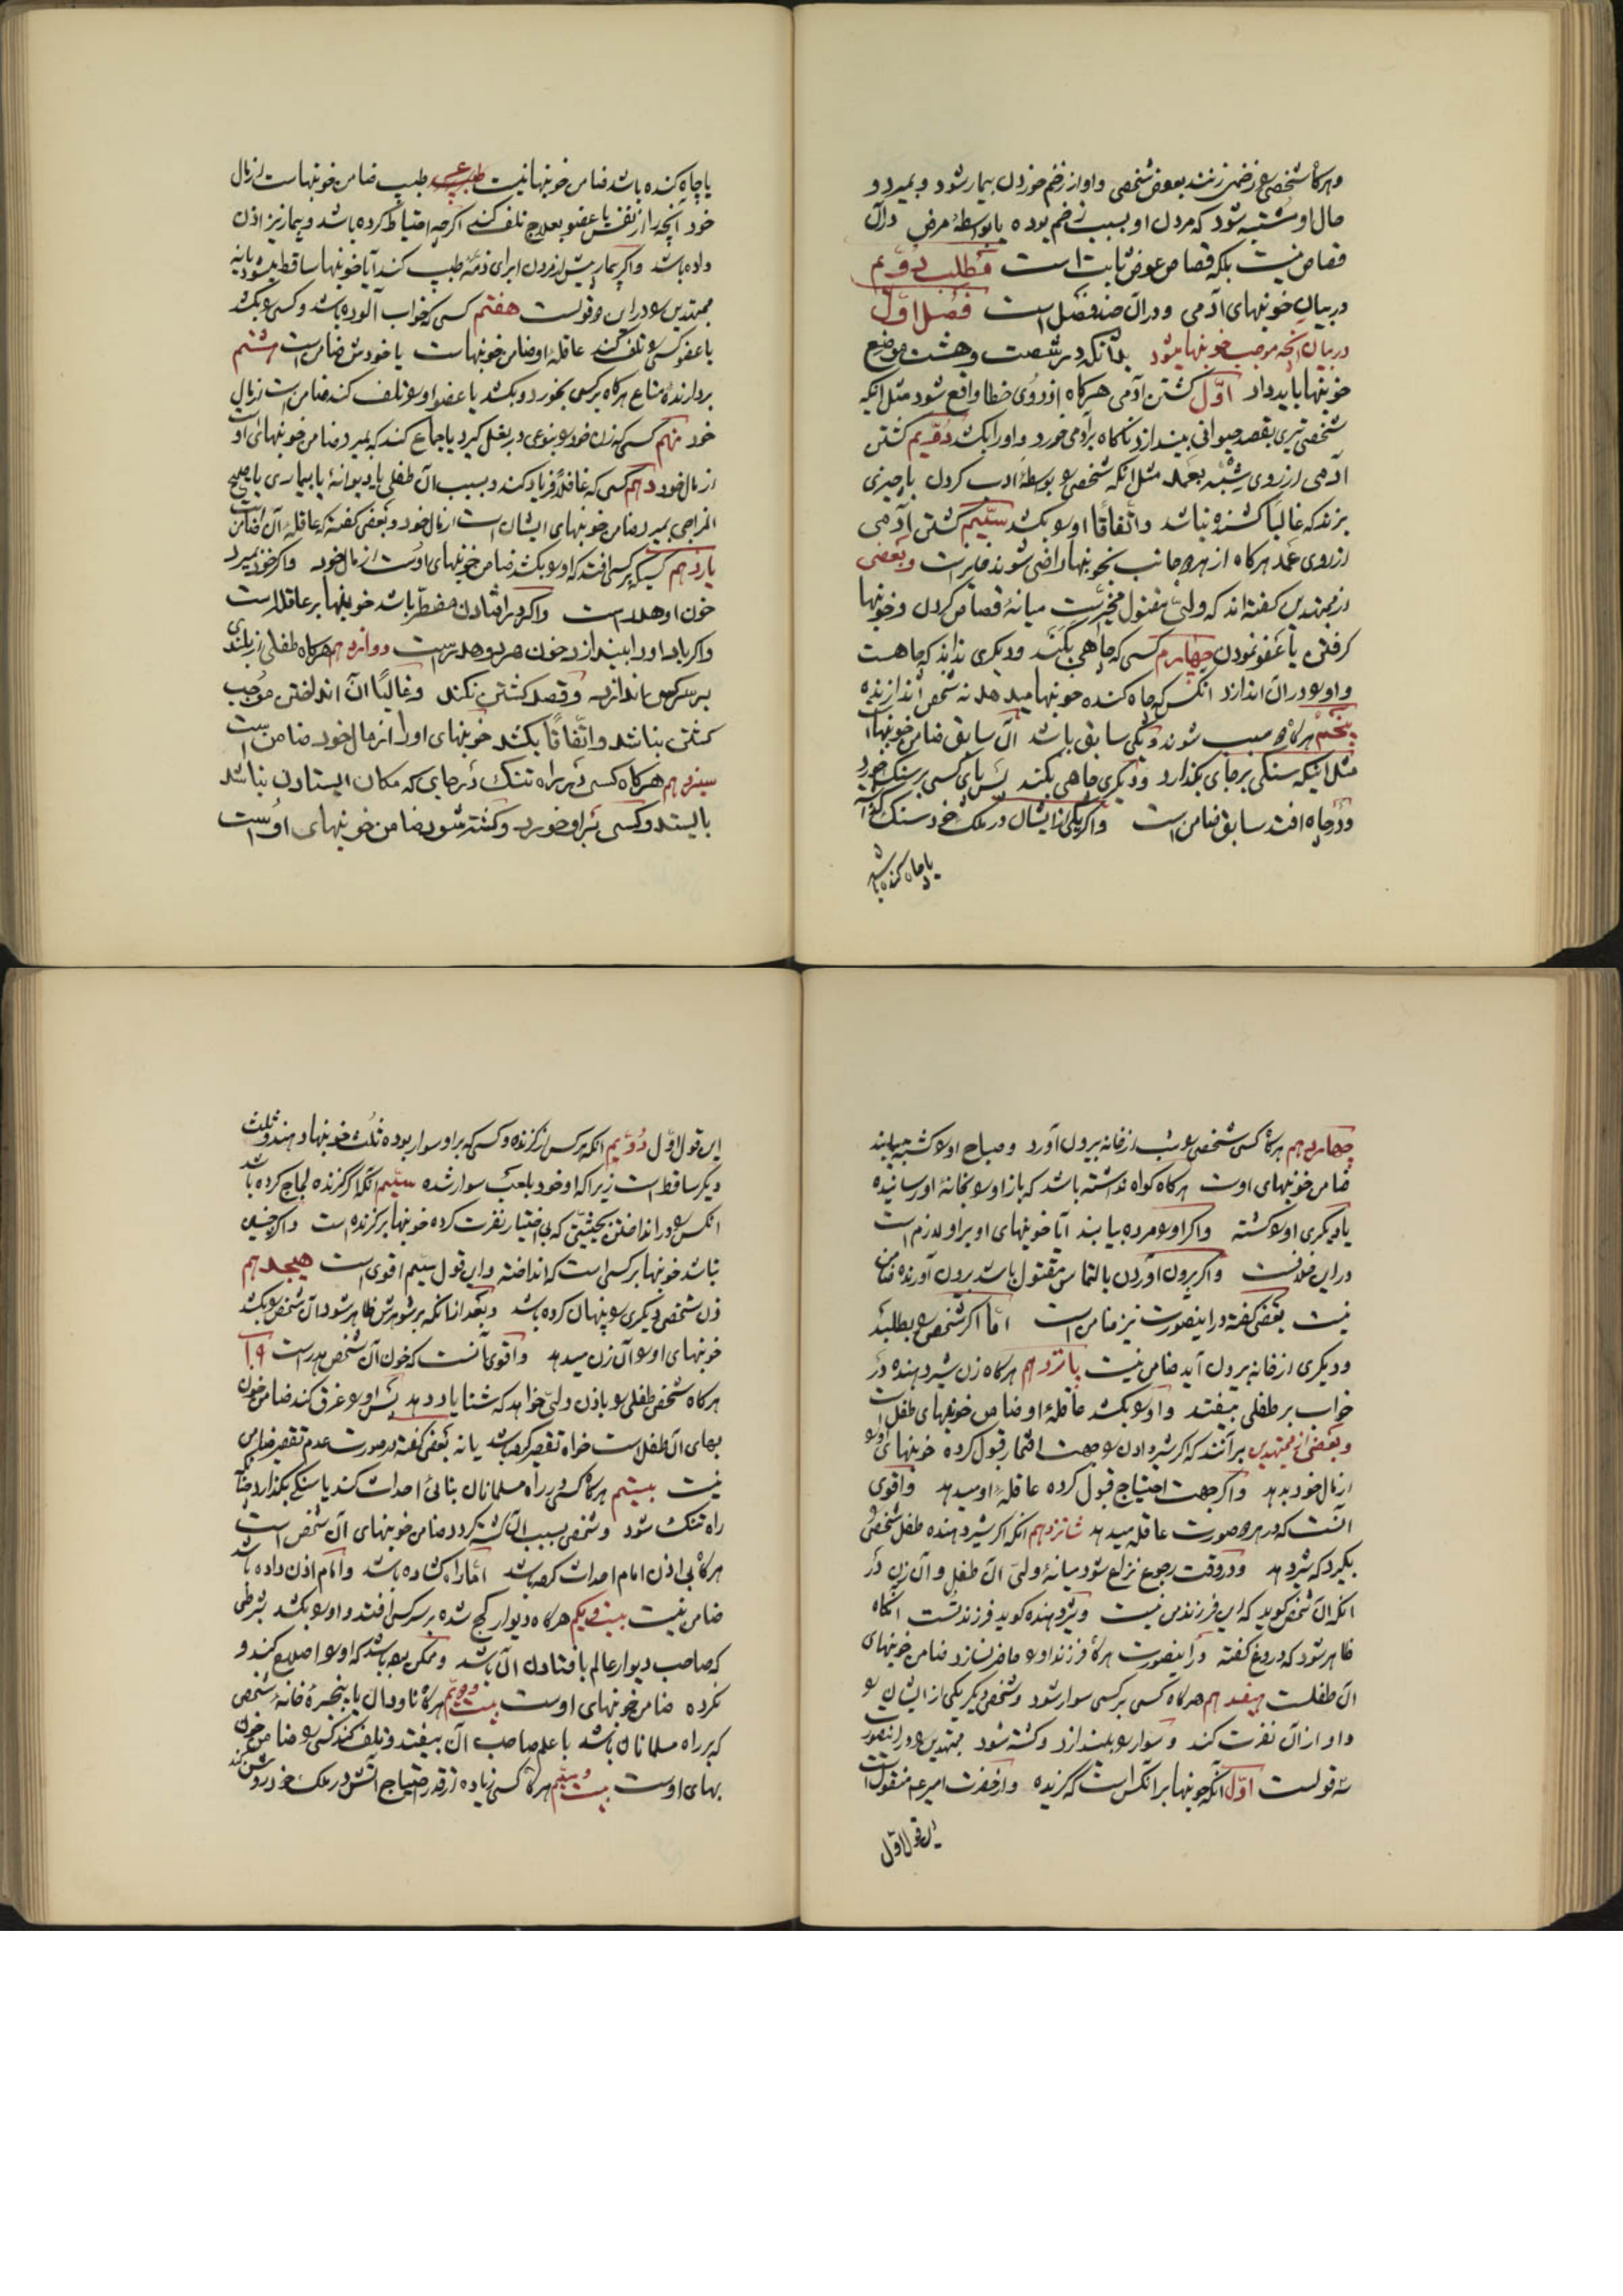 وهرگاه شخصی را زخمی زنند بعوض شخصی و او از زخم خوردن بیمار شود و بمیرد و
حال او مشتبه شود که مردن او بسبب زخم بوده یا بواسطهٔ مرض در آن
قصاص نیست بلکه قصاص عوض ثابت است مطلب دویم
در بیان خونبهای آدمی و در آن چند فصل است فصل اول
در بیان آنچه موجب خونبها میشود بدانکه در شصت و هشت موضع
خونبها باید داد اوّل کشتن آدمی هرگاه از روی خطا واقع شود مثل انکه
شخصی تیری بقصد حیوانی بیندازد ناگاه برآدمی خورد و او را بکشد دویم کشتن
آدمی از روی شبیه بعمد مثل انکه شخصی را بواسطهٔ ادب کردن با چیزی
بزند که غالبا کشنده نباشد و اتّفاقًا او را بکشد سیّیم کشتن آدمی
از روی عمد هرگاه از هر دو جانب بخونبها راضی شوند جایز است و بعضی
از مجتهدین گفته‌اند که ولیّ مقتول مخیّر است میانهٔ قصاص کردن و خونبها
گرفتن یا عفو نمودن چهارم کسی که چاهی بکند و دیگری نداند که چاه هست
و او را در آن اندازد انکس که چاه کنده خونبها میدهد نه شخص اندازنده
پنجم هرگاه دو سبب شوند و یکی سابق باشد آن سابق ضامن خونبهاست
مثل اینکه سنگی بر جای بگذارد و دیگری چاهی بکند پس پای کسی بر سنگ خورد
و در چاه افتد سابق ضامن است و اگر یکی از ایشان در ملک خود سنگ گذارد
یا چاه کنده باشد
یا چاه کنده باشد ضامن خونبها نیست طبیب ضامن خونبهاست از مال
خود آنچه را از نفس یا عضو بعلاج تلف کند اگرچه احتیاط کرده باشد و بیمار نیز اذن
داده باشد و اگر بیمار پیش از مردن ابرای ذمّهٔ طبیب کند آیا خونبها ساقط میشود یا نه
مجتهدین را در این دو قولست هفتم کسی که خواب آلوده باشد و کسی را بکشد
یا عضو کسی را تلف کند عاقلهٔ او ضامن خونبهاست یا خودش ضامن است هشتم
بردارندهٔ متاع هرگاه بر کسی بخورد و بکشد یا عضو او را تلف کند ضامن است از مال
خود نهم کسی که زن خود را بنوعی در بغل گیرد یا جماع کند که بمیرد ضامن خونبهای او است
از مال خود دهم کسی که غافلاً فریاد کند و بسبب آن طفلی یا دیوانهٔ یا بیماری یا صحیح
المزاجی بمیرد ضامن خونبهای ایشان است از مال خود و بعضی گفته که عاقلهٔ آن ضامن است
یازدهم کسیکه بر کسی افتد که او را بکشد ضامن خونبهای اوست از مال خود و اگر خود بمیرد
خون او هدر است و اگر در افتادن مضطرّ باشد خونبها بر عاقله است
و اگر باد او را بیندازد خون هر دو هدر است دوازدهم هرگاه طفلی از بلندی
بر سر کسی اندازد و قصد کشتن نکند و غالبًا آن انداختن موجب
کشتن نباشد و اتّفاقًا بکشد خونبهای او را از مال خود ضامن است
سیزدهم هرگاه کسی در راه تنگ در جای که مکان ایستادن نباشد
بایستد و کسی بر او خورد و کشته شود ضامن خونبهای اوست
چهاردهم هرگاه کسی شخصی را شب از خانه بیرون آورد و صباح او را کشته بیابند
ضامن خونبهای اوست هرگاه گواه نداشته باشد که باز او را بخانهٔ او رسانیده
یا دیگری او را کشته و اگر او را مرده بیابند آیا خونبهای او بر او لازم است
در این خلافست و اگر بیرون آوردن بالتماس مقتول باشد بیرون آورنده ضامن
نیست بعضی گفته در اینصورت نیز ضامن است امّا اگر شخصی را بطلبد
و دیگری از خانه بیرون آید ضامن نیست پانزدهم هرگاه زن شیر دهنده در
خواب بر طفلی بیفتد و او را بکشد عاقلهٔ او ضامن خونبهای طفل است
و بعضی از مجتهدین برآنند که اگر شیر دادن را جهت افتخار قبول کرده خونبهای او را
از مال خود بدهد و اگر جهت احتیاج قبول کرده عاقلهٔ او میدهد و اقوی
آنست که در هر دو صورت عاقله میدهد شانزدهم انکه اگر شیر دهنده طفل شخصی را
بگیرد که شیر دهد و در وقت رجوع نزاع شود میانهٔ ولیّ آن طفل و آن زن در
انکه آن شخص گوید که این فرزند من نیست و شیر دهنده گوید فرزند تست آنگاه
ظاهر شود که دروغ گفته در اینصورت هرگاه فرزند او را حاضر نسازد ضامن خونبهای
آن طفلست هفدهم هرگاه کسی بر کسی سوار شود و شخص دیگر یکی از ایشان را
و او از آن نفرت کند و سوار را بیندازد و کشته شود مجتهدین را در اینصورت
سه قولست اوّل آنکه خونبها بر انکس است که گزیده و از حضرت امیر ع م منقول است
این قول اوّل
این قول اوّل دُوّیم انکه هر کس از گزنده و کسی که بر او سوار بوده ثلث خونبها دهند و ثلث
دیگر ساقط است زیرا که او خود بلعب سوار شده سیّیم انکه اگر گزنده لجاج کرده باشد
انکس را در انداختن بحیثیتی که بی اختیار نفرت کرده خونبها بر گزنده است و اگر چنین
نباشد خونبها بر کسی است که انداخته و این قول سیّیم اقوی است هیجدهم
زن شخص دیگری را پنهان کرده باشد و بعد از انکه بر شوهرش ظاهر شود آن شخص را بکشد
خونبهای او را آن زن میدهد و اقوی آنست که خون آن شخص هدر است ۱۹
هرگاه شخصی طفلی را باذن ولیّ خواهد که شنا یاد دهد پس او را غرق کند ضامن خون
بهای آن طفل است خواه تقصیر کرده باشد یا نه بعضی گفته در صورت عدم تقصیر ضامن
نیست بیستم هرگاه کسی در راه مسلمانان بنائی احداث کند یا سنگی بگذارد چنانکه
راه تنگ شود و شخصی بسبب آن کشته گردد ضامن خونبهای آن شخص است
هرگاه بی اذن امام احداث کرده باشد امّا راه گشاده باشد و امام اذن داده باشد
ضامن نیست بیست و یکم هرگاه دیوار کج شده بر سر کسی افتد و او را بکشد بشرطی
که صاحب دیوار عالم بافتادن آن باشد و ممکن بوده باشد که او را اصلاح کند و
نکرده ضامن خونبهای اوست بیست و دوّیم هرگاه ناودان یا پنجرهٔ خانهٔ شخصی
که بر راه مسلمانان باشد با علم صاحب آن بیفتد و تلف کند کسی را ضامن خون
بهای اوست بیست و سیّم هرگاه کسی زیاده از قدر احتیاج آتش در ملک خود روشن کند